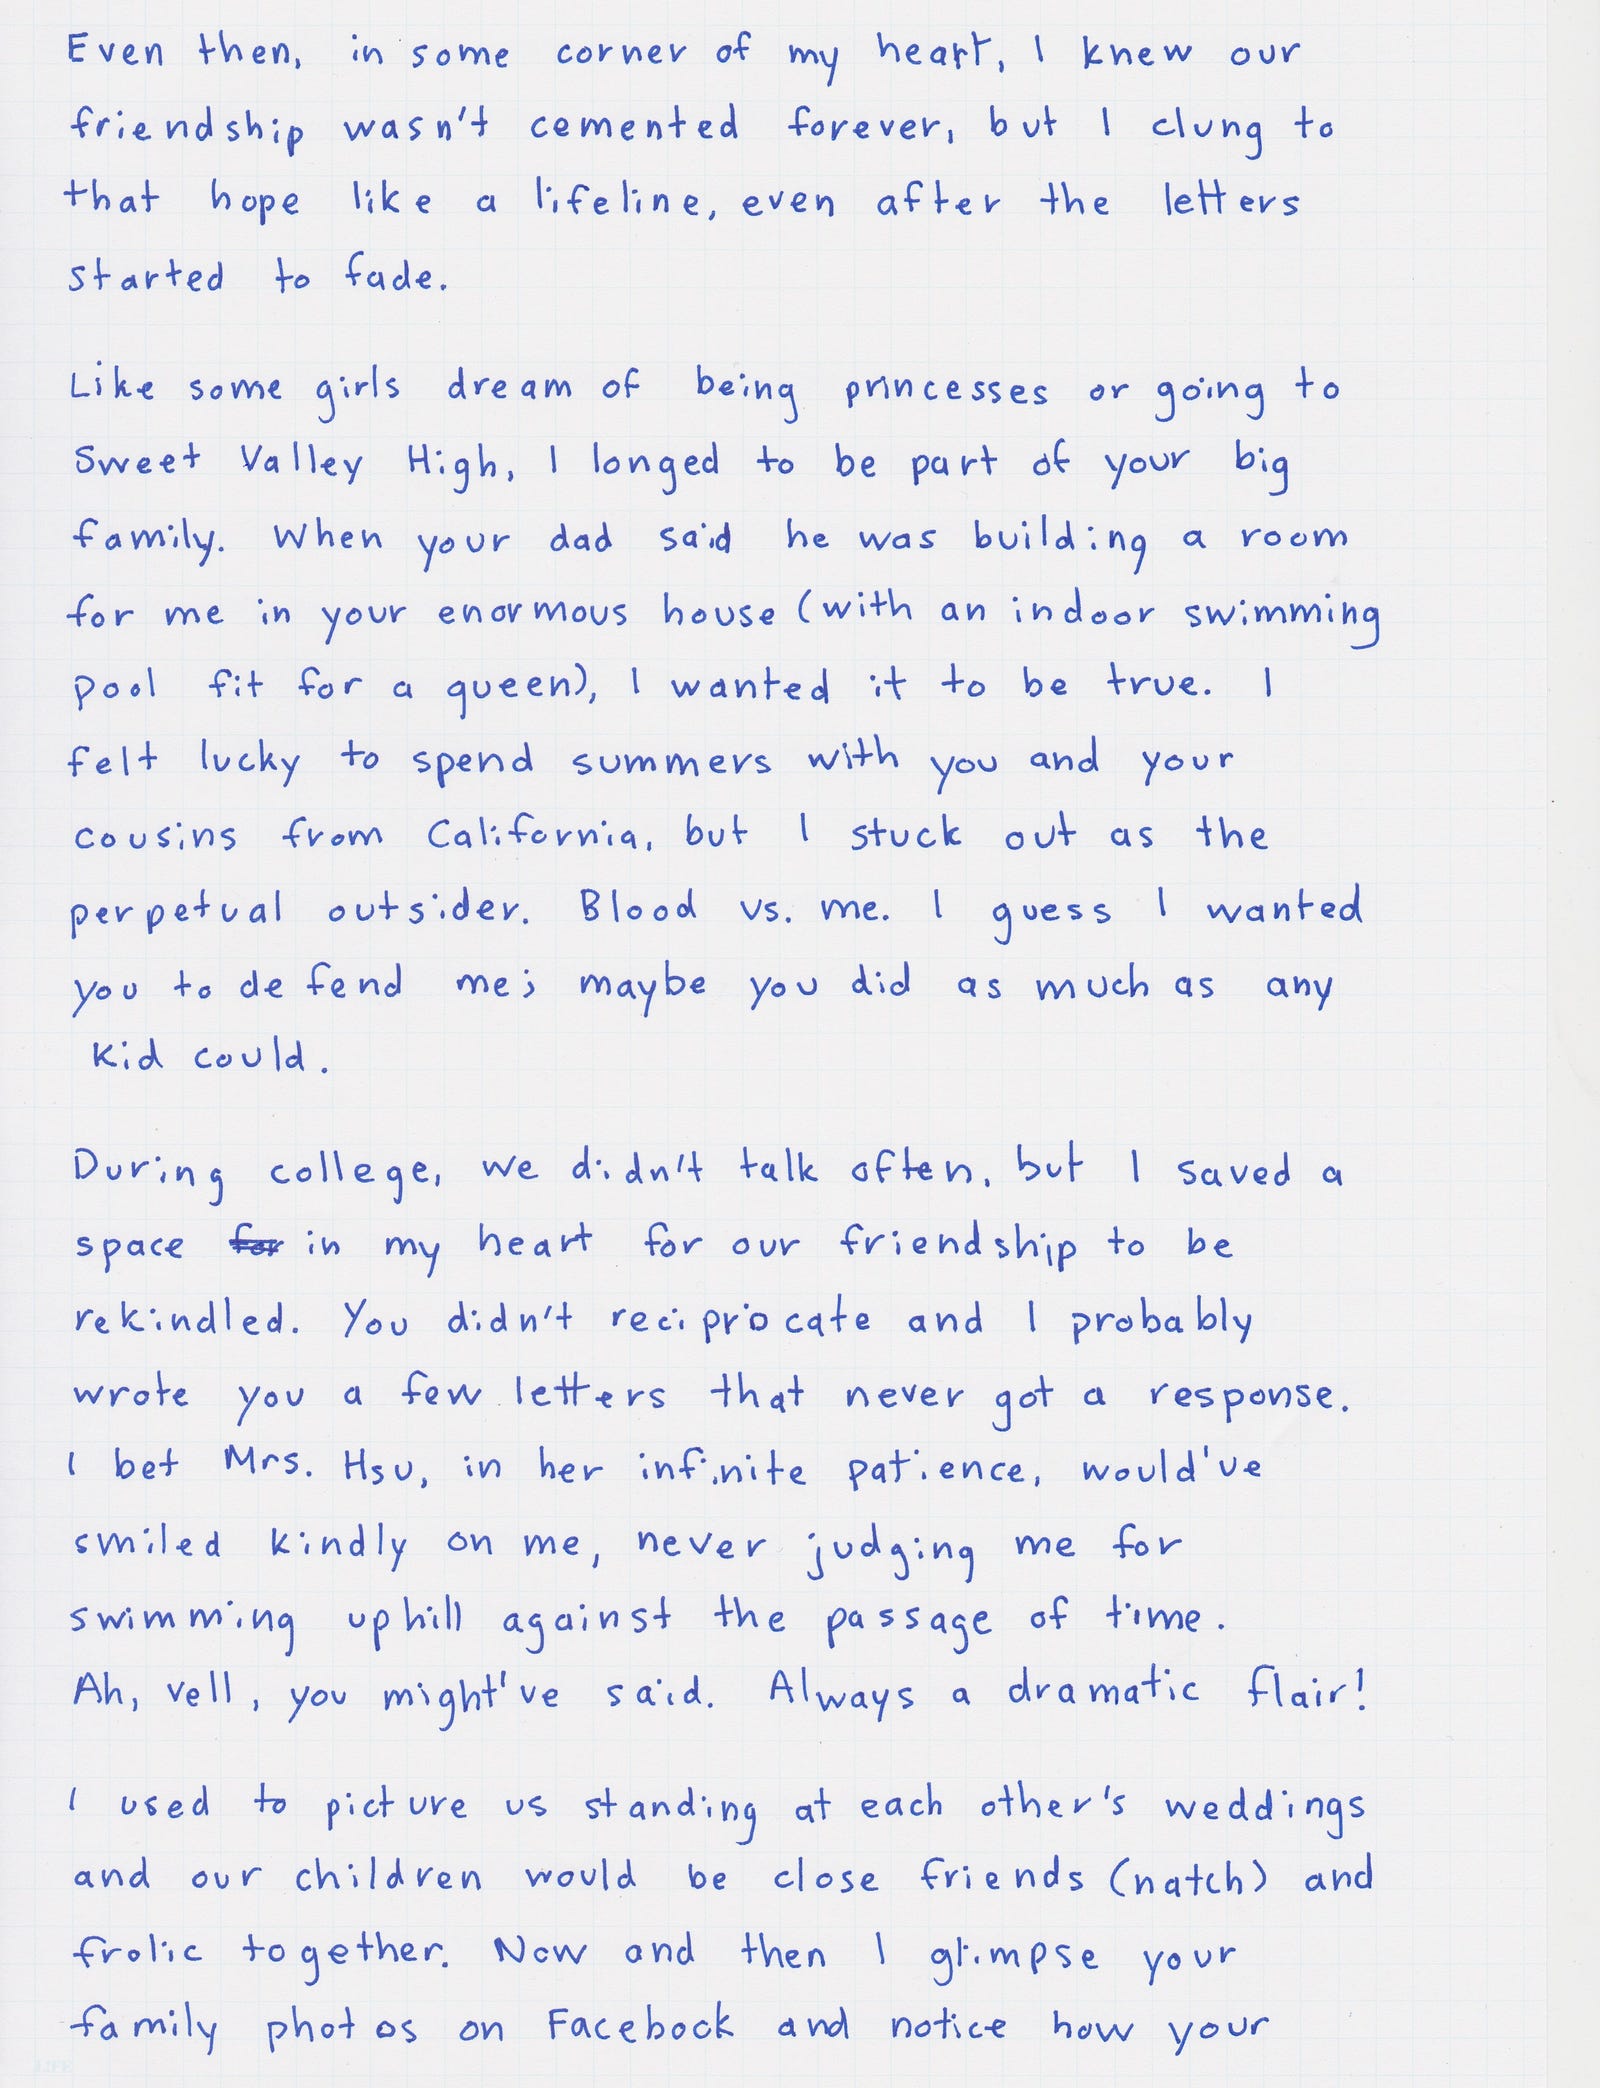 Even then, in some corner of my heart, I knew our
friendship wasn't cemented forever, but I clung to
that hope like a lifeline, even after the letters
started to fade.
Like some girls dream of being princesses or going to
Sweet Valley High, I longed to be part of your big
family. When your dad said he was building a room
for me in your enormous house (with an indoor swimming
pool fit for a queen), I wanted it to be true. I
felt lucky to spend summers with you and your
cousins from California, but I stuck out as the
perpetual outsider. Blood vs. me. I guess I wanted
you to defend me; maybe you did as much as any
kid could.
During college, we didn't talk often, but I saved a
space for in my heart for our friendship to be
rekindled. You didn't reciprocate and I probably
wrote you a few letters that never got a response.
I bet Mrs. Hsu, in her infinite patience, would've
smiled kindly on me, never judging me for
swimming uphill against the passage of time.
Ah, vell, you might've said. Always a dramatic flair!
I used to picture us standing at each other's weddings
and our children would be close friends (natch) and
frolic together. Now and then I glimpse your
family photos on Facebook and notice how your
LIFE